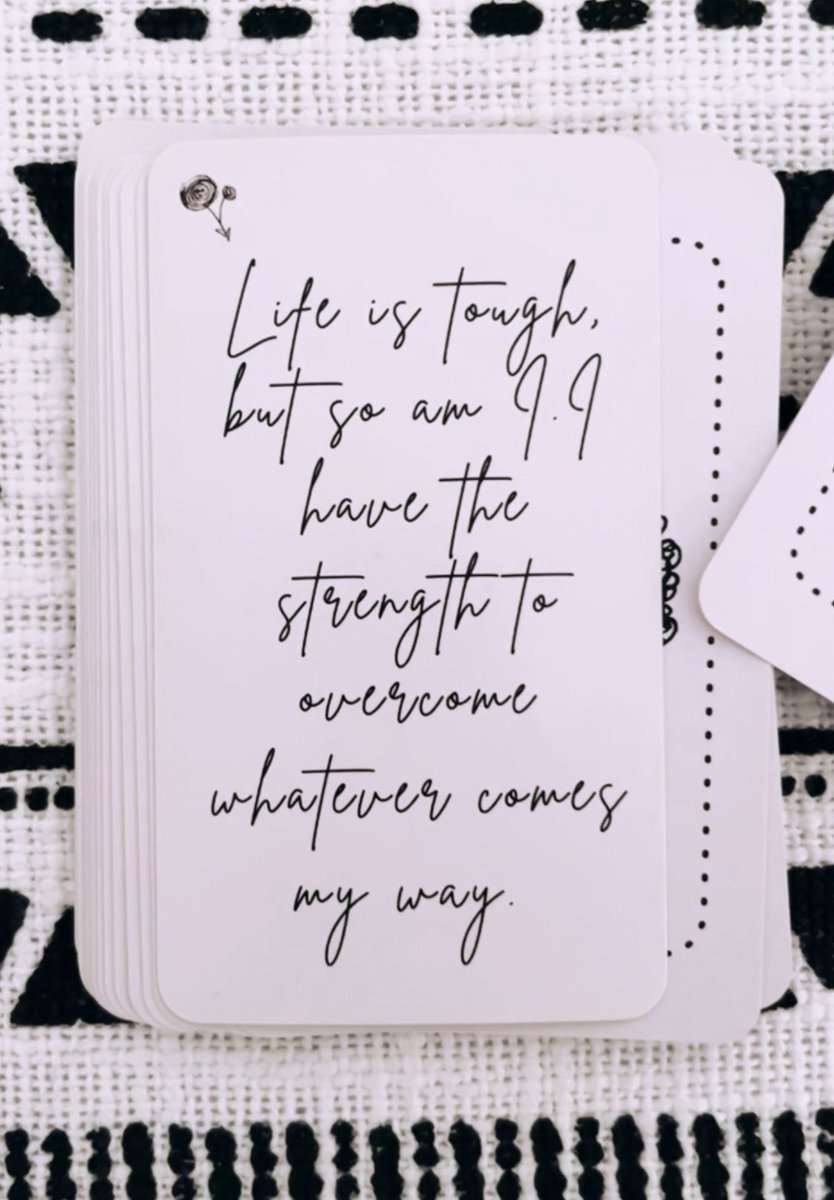 Life is tough,
but so am I.I
have the
strength to
overcome
whatever comes
my way.